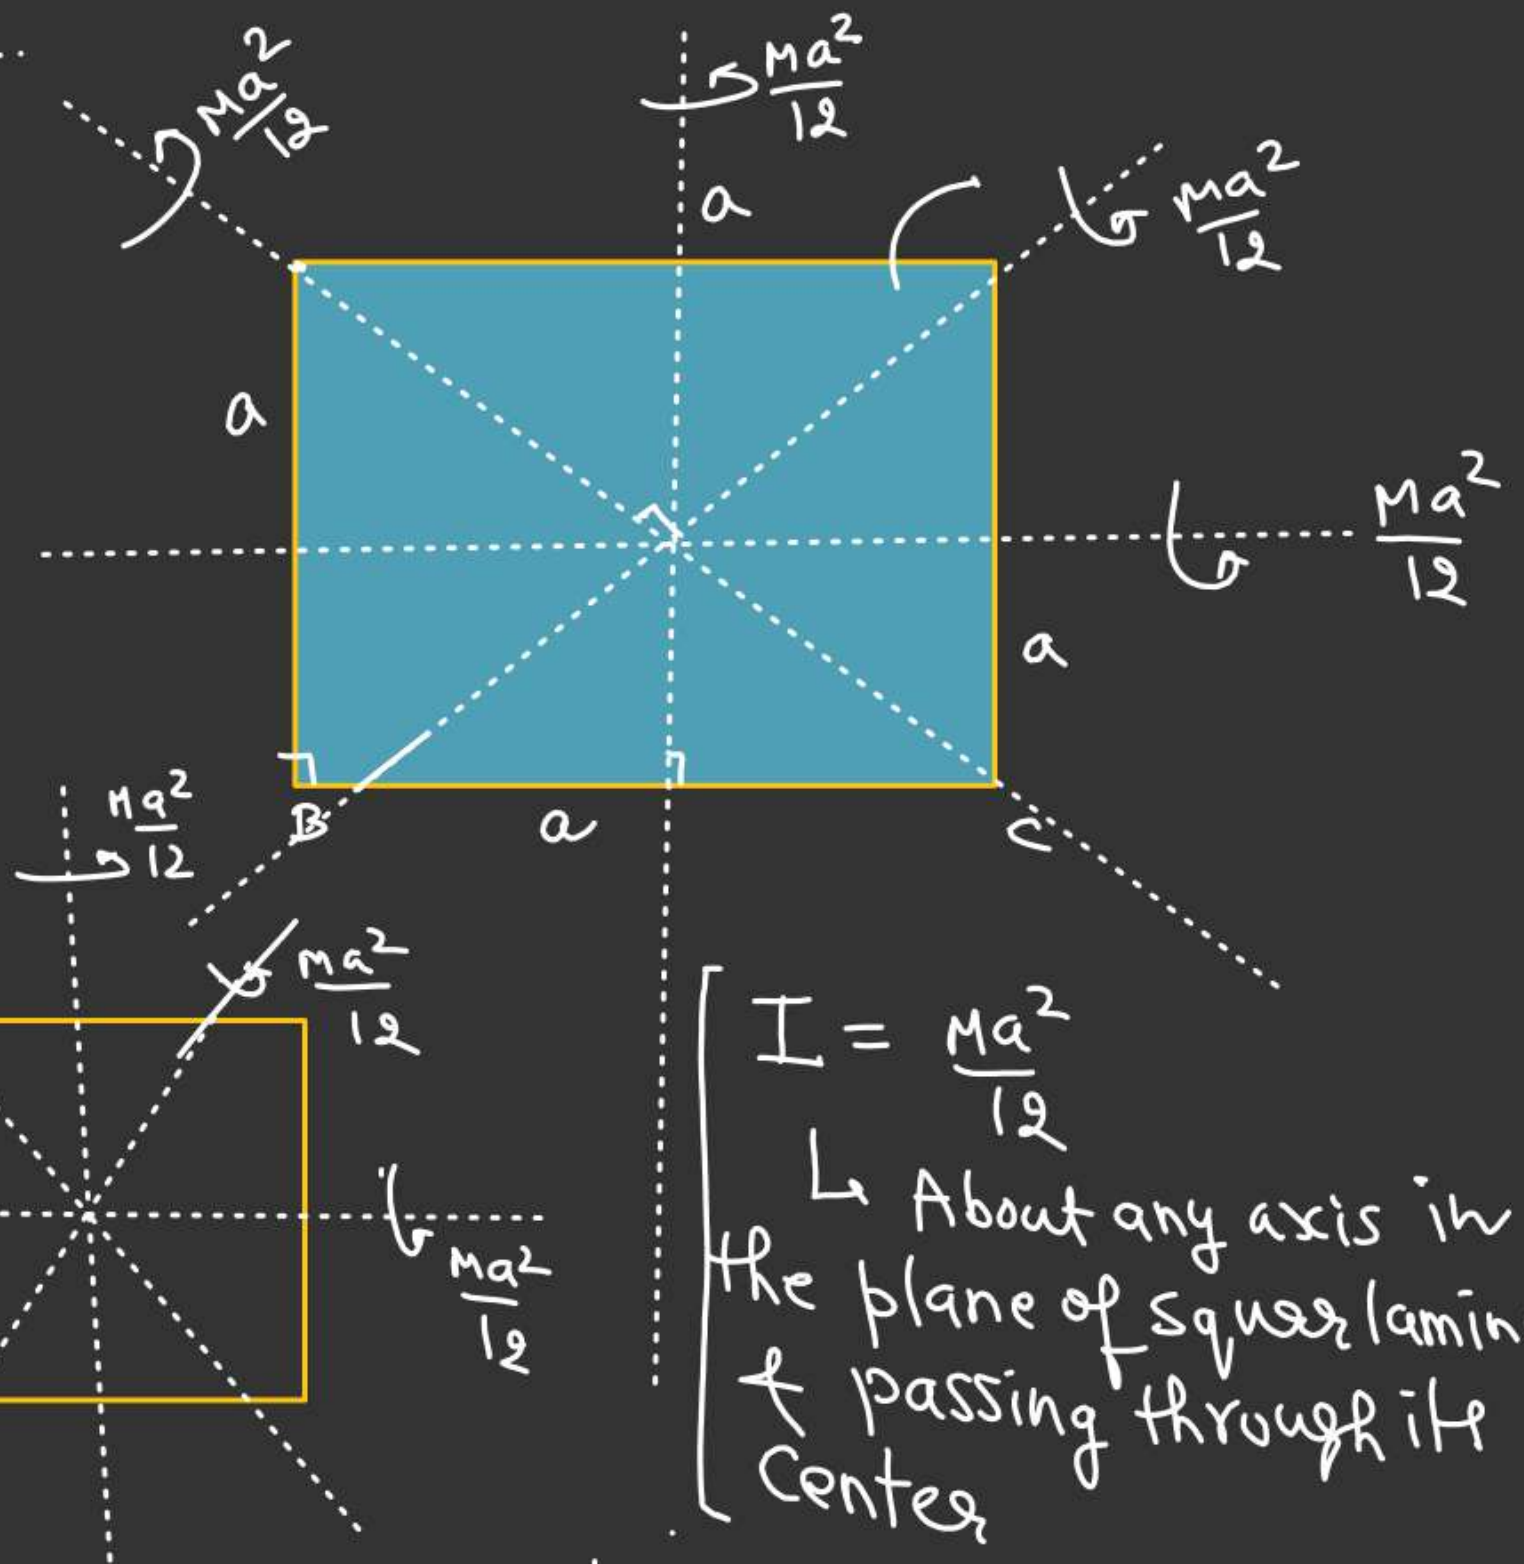 Ma²/12
Ma²/12
a
Ma²/12
a
Ma²/12
a
B
a
C
Ma²/12
Ma²/12
Ma²/12
I = Ma²/12
↳ About any axis in
the plane of squar lamin
& passing through its
Center